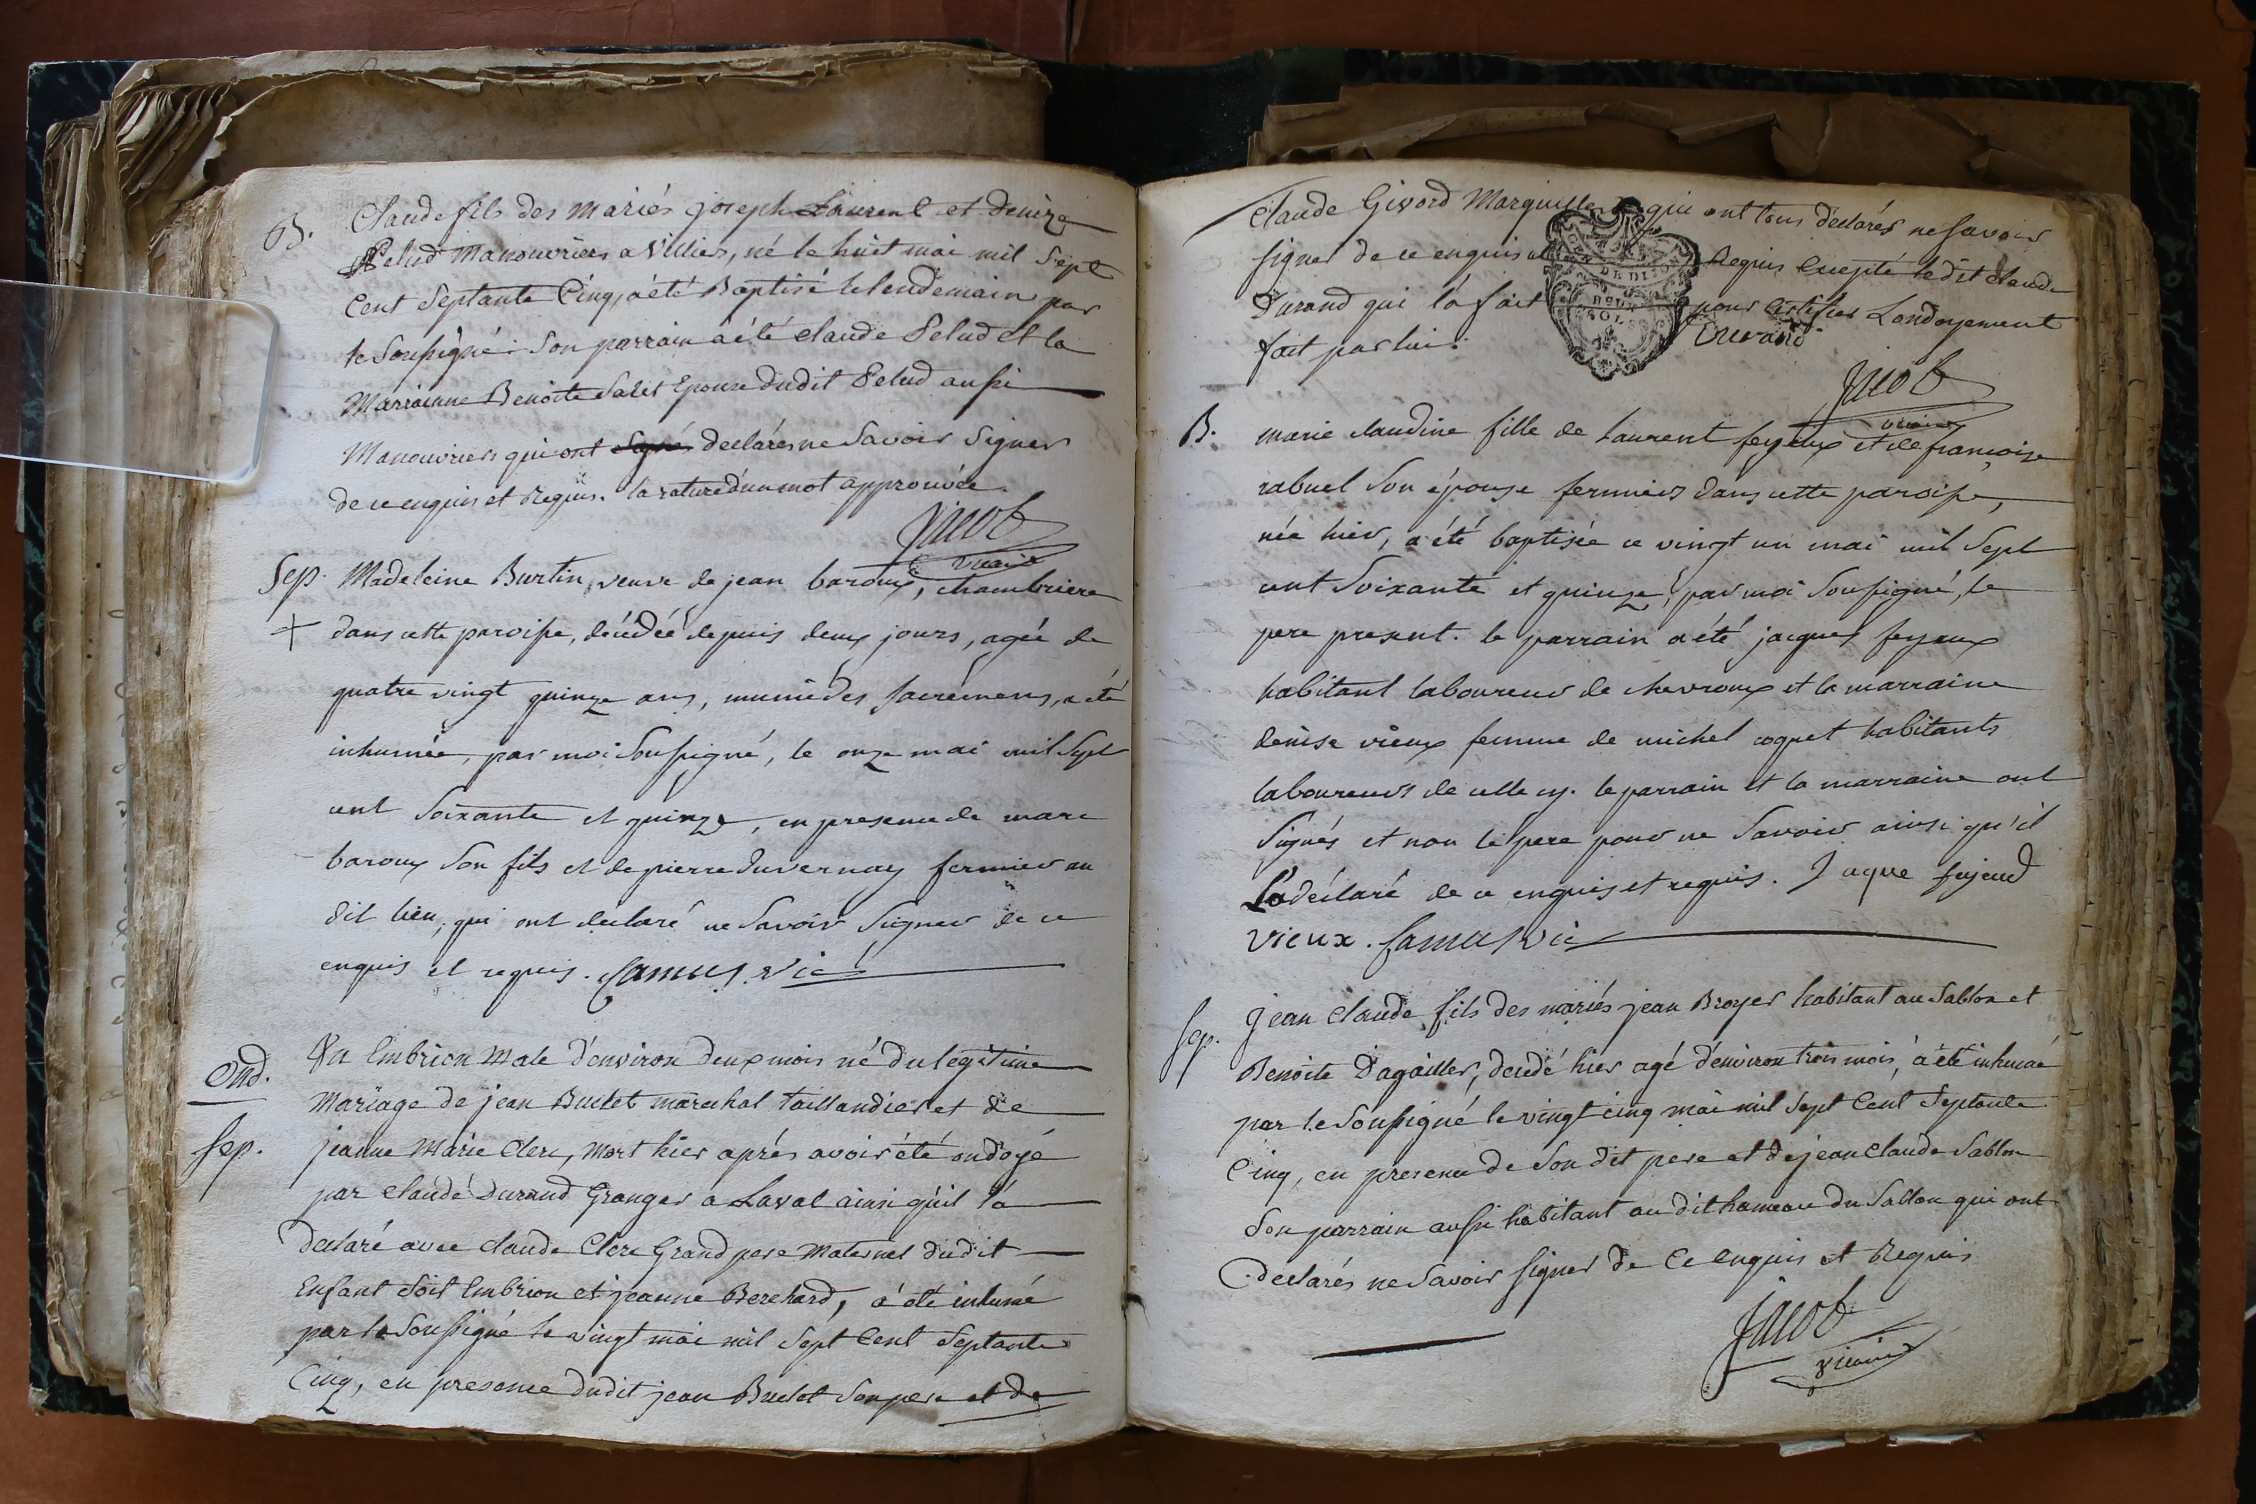 B.
Claude fils des mariés joseph Laurent et Denize
Pelud Manouvriers a Villies, né le huit mai mil Sept
Cent Septante Cinq, a été Baptisé le lendemain par
le Soussigné. Son parrain a été claude Pelud et la
Marrainne Benoite Salet Epouse dudit Pelud aussi
Manouvriers qui ont declarés ne Savoir Signer
de ce enquis et Requis. la rature d'un mot approuvée
Jacob
vicaire
Sep. Madeleine Burtin, veuve de jean baroux, chambriere
+ dans cette paroisse, décédée depuis deux jours, agée de
quatre vingt quinze ans, munie des sacremens, a été
inhumée, par moi Soussigné, le onze mai mil Sept
cent Soixante et quinze, en presence de marc
baroux Son fils et de pierre duvernay fermier au
dit lieu, qui ont declaré ne Savoir Signer de ce
enquis et requis. Camus vic
Ond. Un Embrion Male d'environ deux mois né du légitime
Mariage de jean Buclet maréchal taillandier et de
Sep. jeanne Marie Clerc, Mort hier aprés avoir été ondoyé
par claude Durand Granger a Laval ainsi qu'il l'a
declaré avec claude Clerc Grand pere Maternel dudit
Enfant Soit Embrion et jeanne Berchard, a été inhumé
par le Soussigné le vingt mai mil Sept Cent Septante
Cinq, en presence dudit jean Buclet Son pere et de
Claude Givord Marguillier qui ont tous déclarés ne Savoir
Signer de ce enquis et Requis Excepté le dit Claude
Durand qui l'a fait pour Certifier Londoyement
fait par lui. Durand
GEN. DE DIJON
DEUX SOLS
Jacob
vicaire
B. marie claudine fille de Laurent feyeux et de françoise
rabuel Son épouse fermiers dans cette paroisse,
née hier, a été baptisée ce vingt un mai mil Sept
cent Soixante et quinze, par moi Soussigné, le
pere present. le parrain a été jacques feyeux
habitant laboureur de chevroux et la marraine
denise vieux femme de michel coquet habitants
laboureurs de celle cy. le parrain et la marraine ont
Signés et non le pere pour ne Savoir ainsi qu'il
L'a déclaré de ce enquis et requis. Jaque fejeud
vieux. Camus vic
Sep. Jean Claude fils des mariés jean Broyer habitant au Sablon et
Benoite Dagailler, decedé hier agé d'environ trois mois, a été inhumé
par le Soussigné le vingt cinq mai mil Sept Cent Septante
Cinq, en presence de Son dit pere et de jean claude Sablon
Son parrain aussi habitant au dit hameau du Sablon qui ont
declarés ne Savoir Signer de Ce Enquis et Requis
Jacob
vicaire